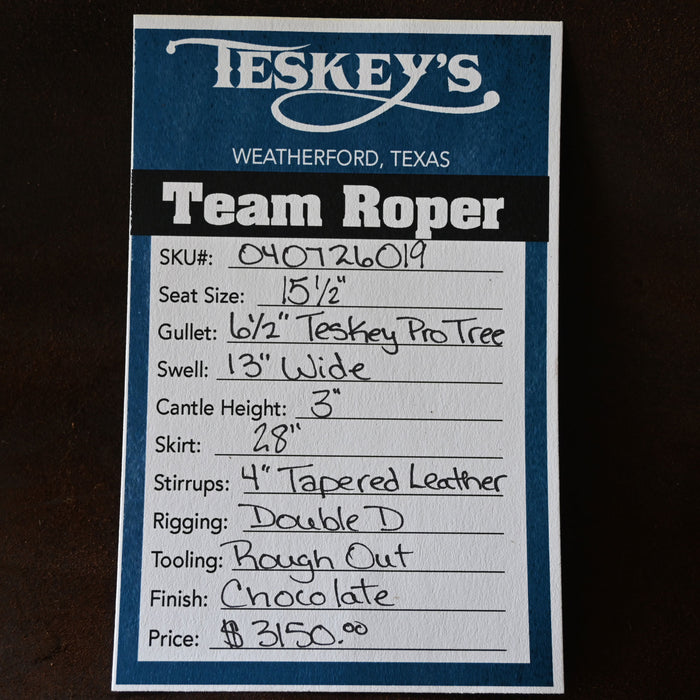 TESKEY'S
WEATHERFORD, TEXAS
Team Roper
SKU#: 040726019
Seat Size: 15 1/2"
Gullet: 6 1/2" Teskey Pro Tree
Swell: 13" Wide
Cantle Height: 3"
Skirt: 28"
Stirrups: 4" Tapered Leather
Rigging: Double D
Tooling: Rough Out
Finish: Chocolate
Price: $3150.00